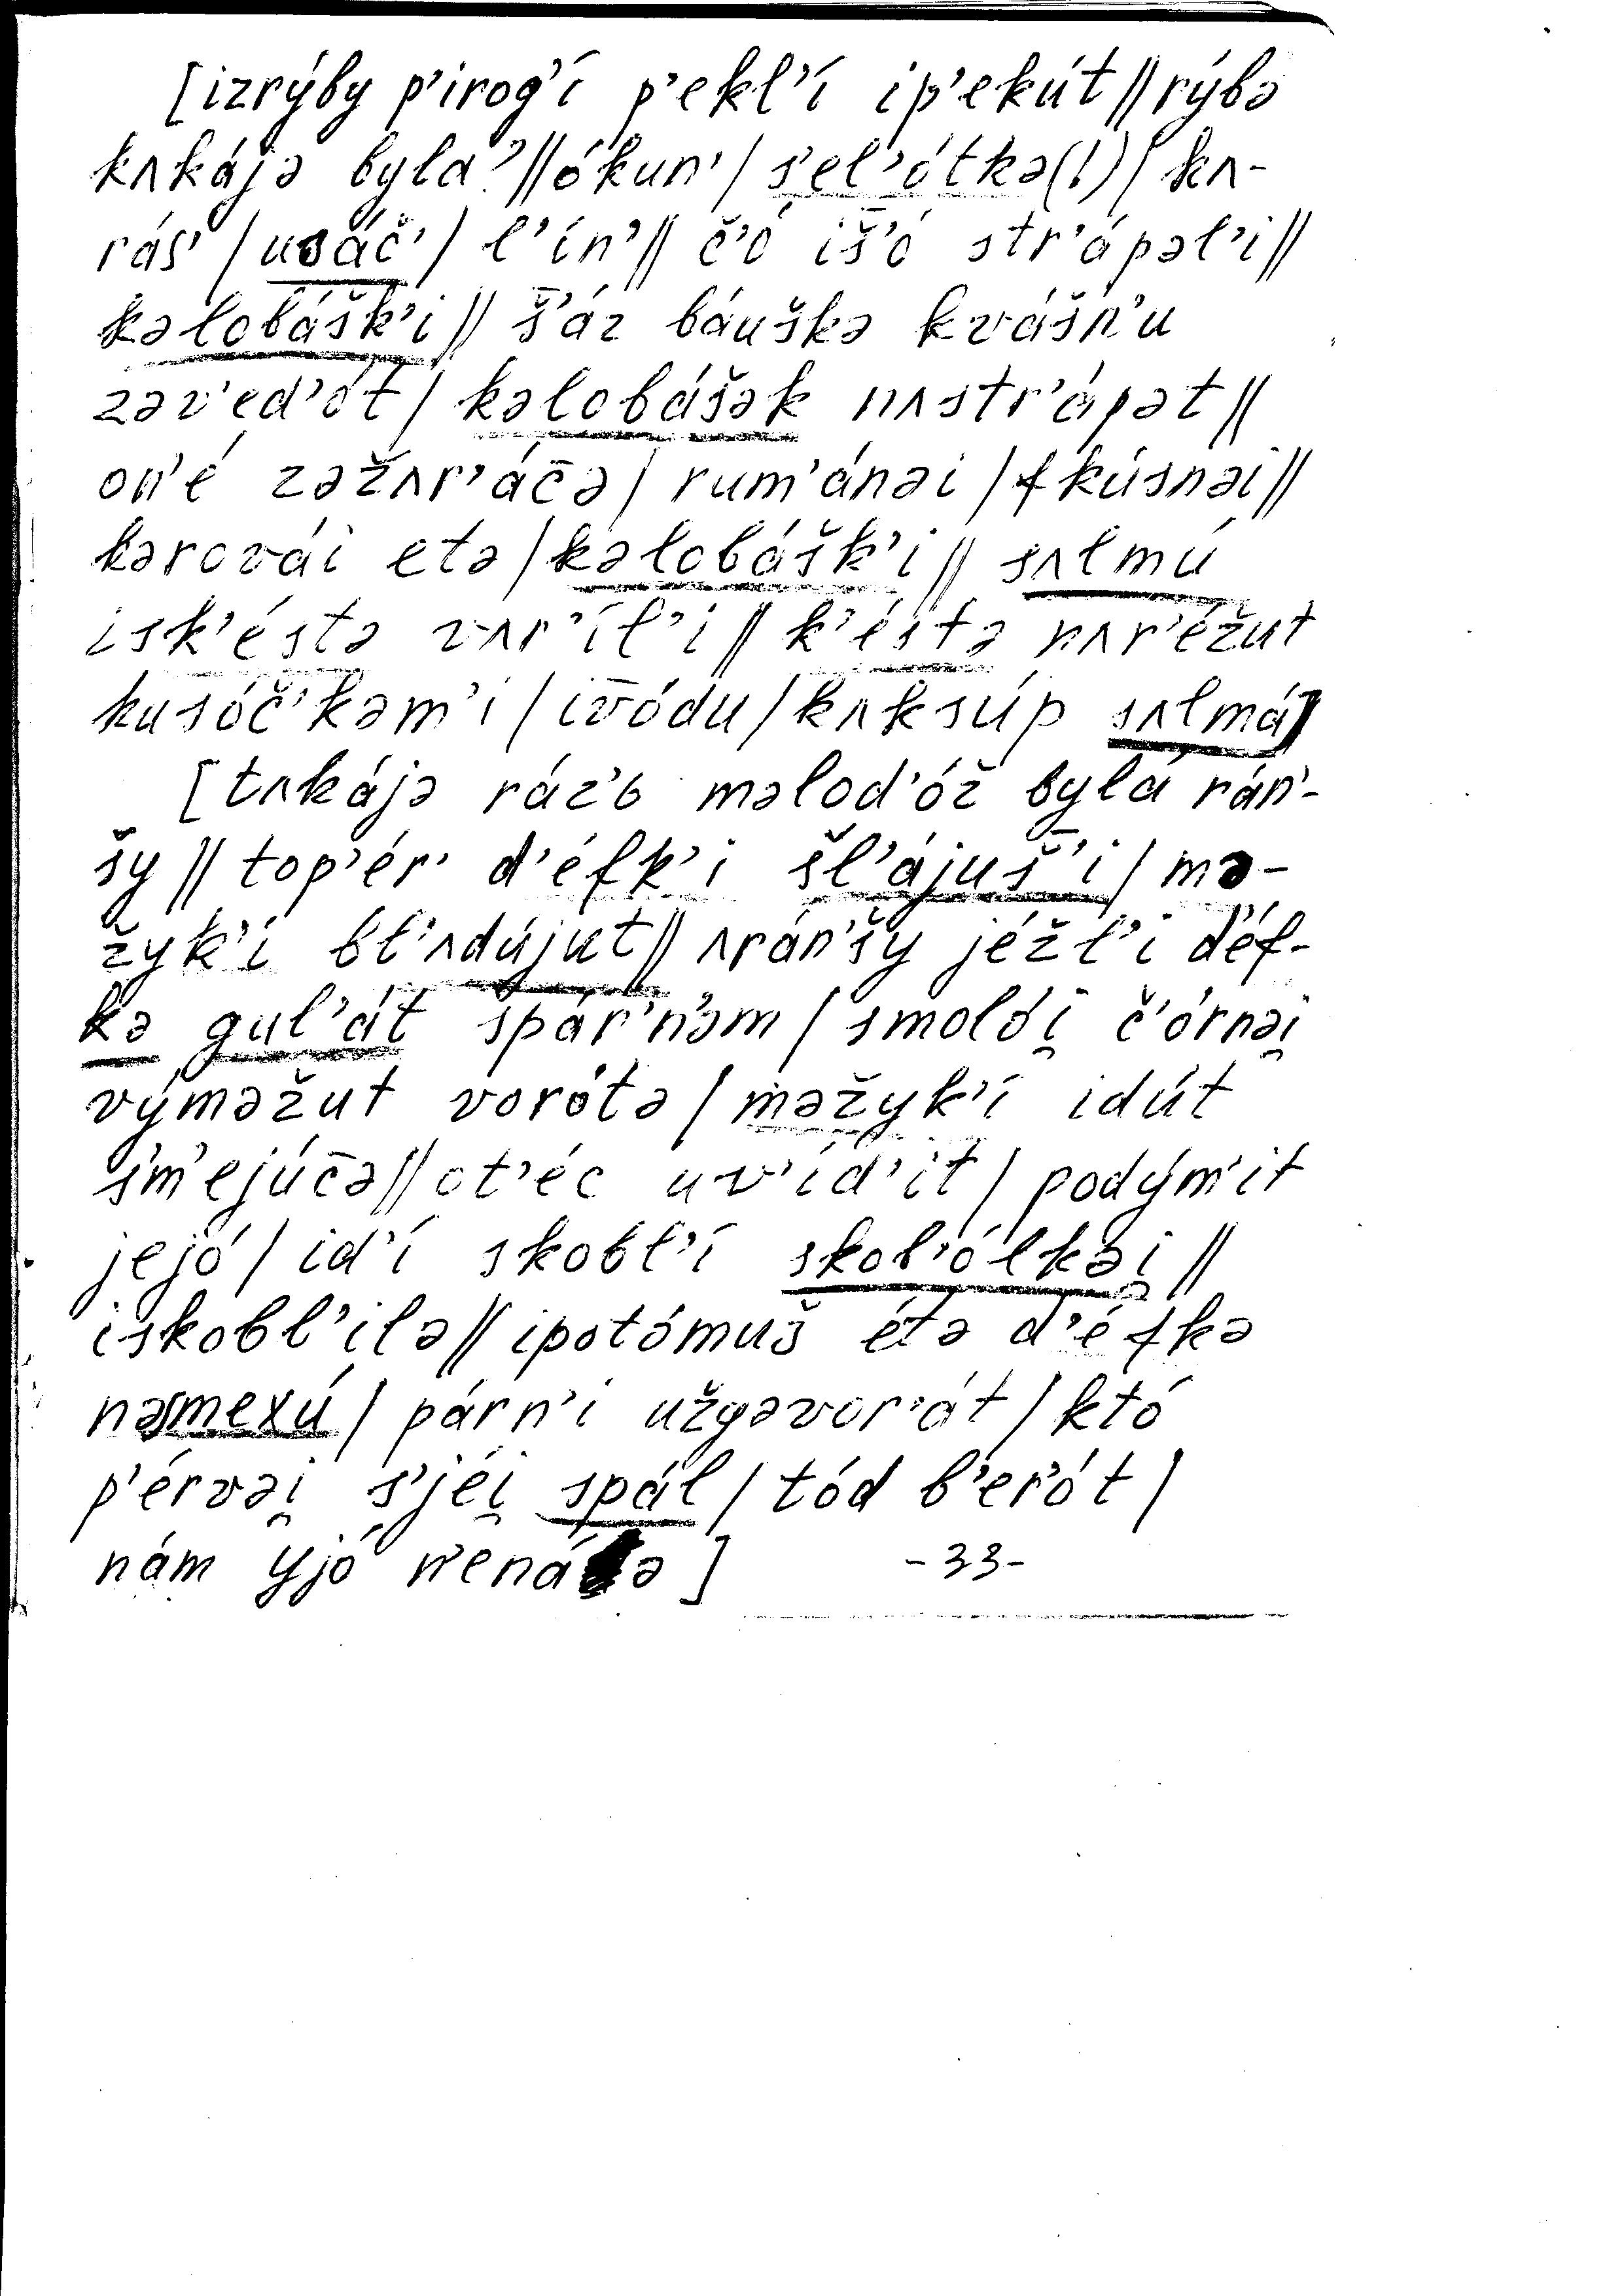 [izrýby p’irog’í p’ekl’í ip’ekút // rýbə
kʌkájə byla? // ókun’ / s’el’ótkə(!) / kʌ-
rás’ / usáč’ / l’ín’ // č’ó iš̄’ó str’ápəl’i //
kəlobášk’i // š̄’áz báuškə kvášn’u
zəv’ed’ót / kəlobášək nʌstr’ápət //
on’é zəžʌr’ác̄ə / rum’ánəi / fkúsnəi //
kərovái etə / kəlobášk’i // sʌlmú
isk’éstə vʌr’íl’i // k’éstə nʌr’éžut
kusóč’kəm’i / iv̄ódu / kʌksúp sʌlmá]
[tʌkájə ráz’ь məlod’óž bylá rán’-
šy // top’ér’ d’éfk’i šl’ájuš̄’i / mə-
žyk’í bl’ʌdújut // ʌrán’šy jéžl’i d’éf-
kə gul’át spár’n’əm / smolói̯ č’órnəi̯
výməžut vorótə / məžyk’í idút
s’m’ejúc̄ə // ot’éc uv’íd’it / podým’it
jejó / id’í skobl’í skob’ólkəi̯ //
iskobl’ílə // ipotómuš étə d’éfkə
nəsmexú / párn’i užgəvor’át / któ
p’érvəi̯ s’jéi̯ spál / tód b’er’ót /
nám yjó n’ená ə] -33-